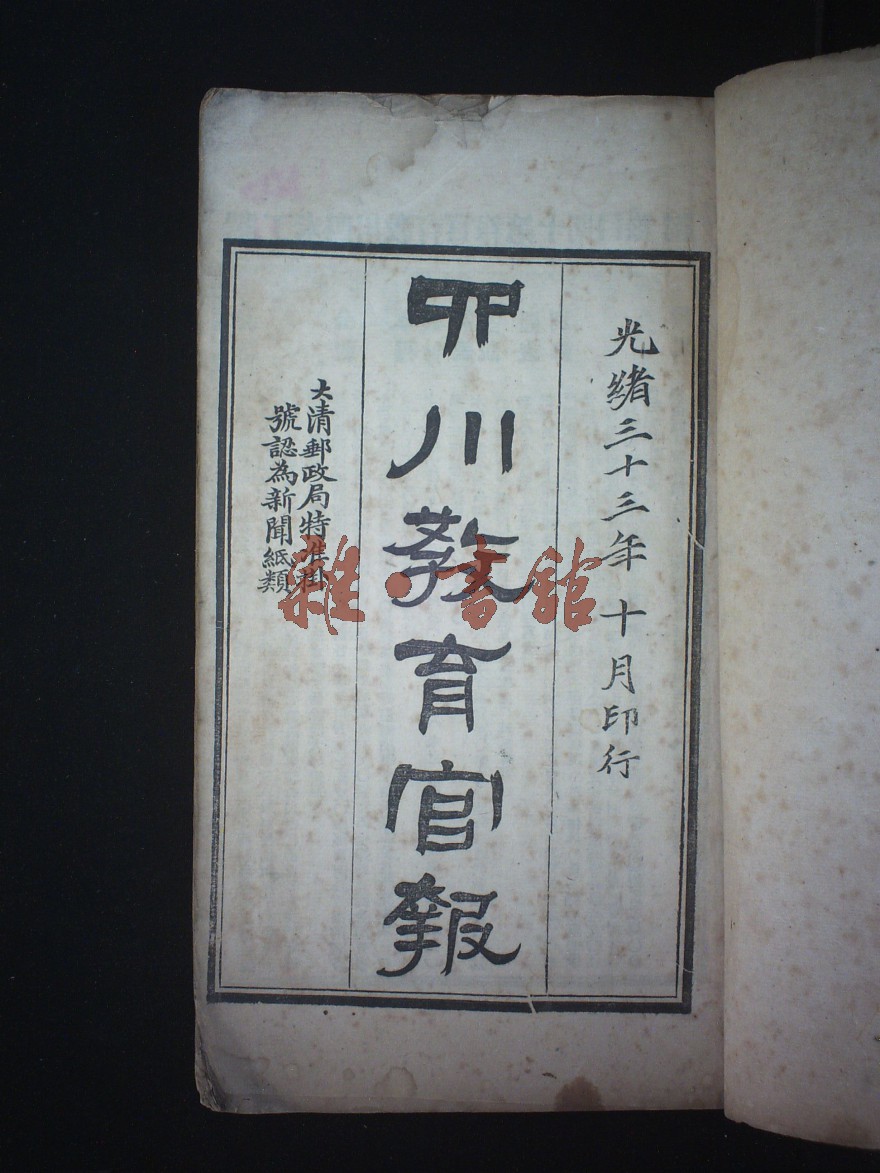 光緒三十三年十月印行
四川教育官報
大清郵政局特准掛
號認為新聞紙類
雜·書館